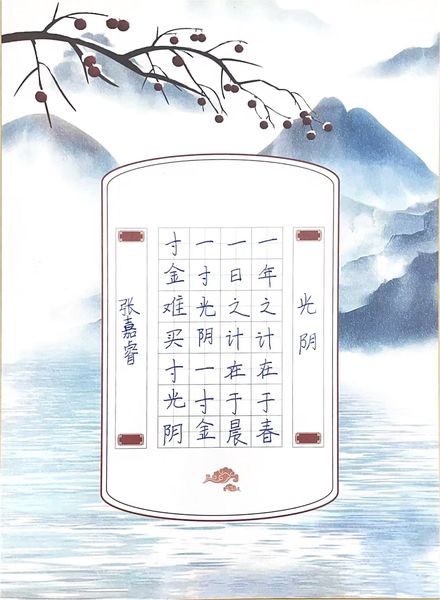 光阴
一年之计在于春
一日之计在于晨
一寸光阴一寸金
寸金难买寸光阴
张嘉睿